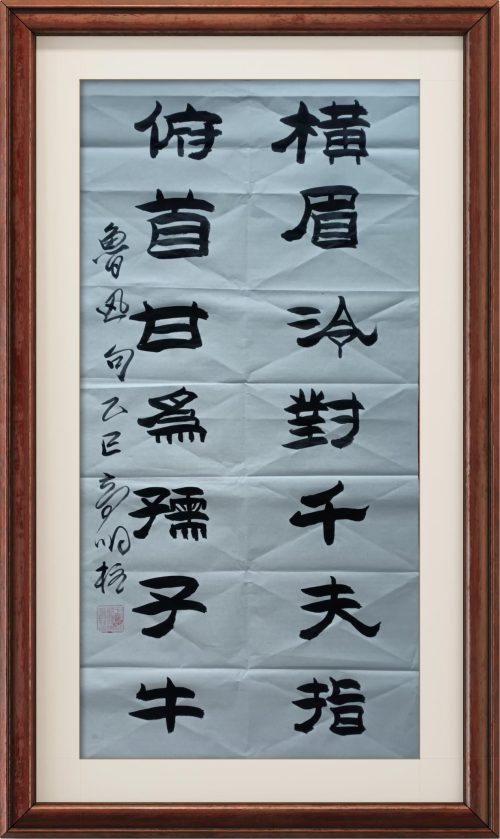 横眉冷對千夫指
俯首甘為孺子牛
魯迅句乙巳明